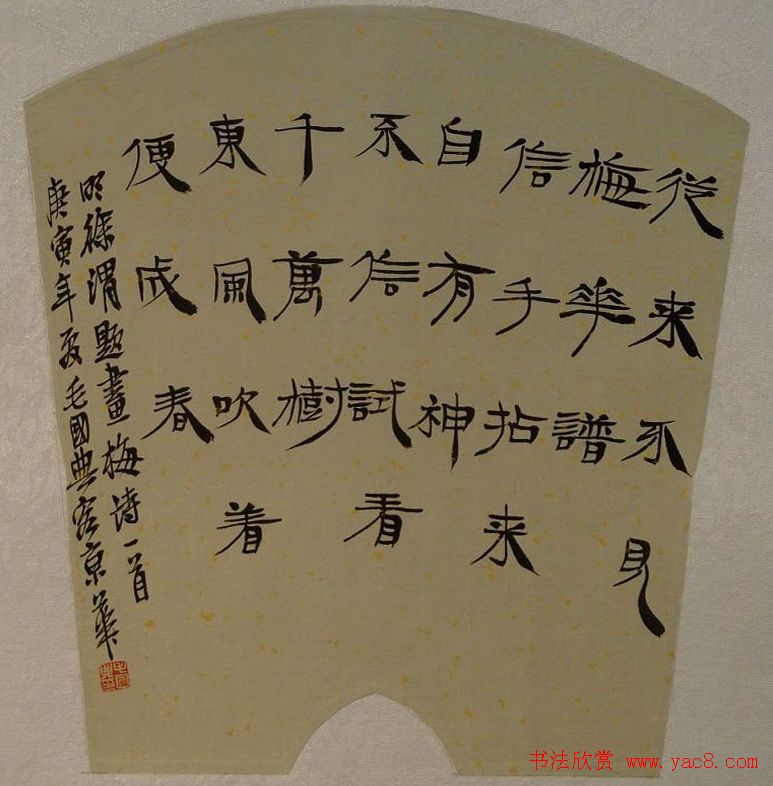 從来不見
梅華譜
信手拈来
自有神
不信試看
千萬樹
東風吹着
便成春
明徐渭題畫梅诗一首
庚寅年夏毛國典客京華
书法欣赏 www.yac8.com